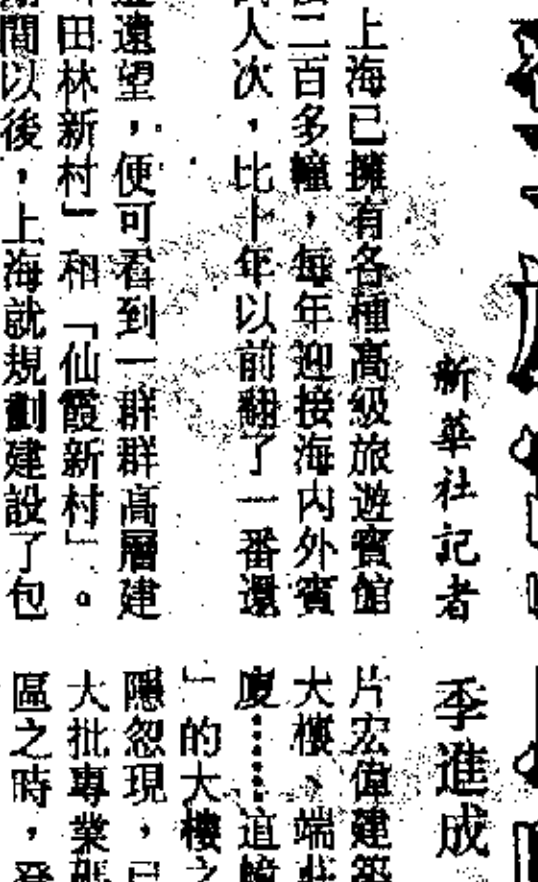 新華社記者 季進成
上海已擁有各種高級旅遊賓館
二百多幢，每年迎接海内外賓
人次，比十年以前翻了一番還
遠望，便可看到一群群高層建
田林新村」和「仙霞新村」。
間以後，上海就規劃建設了包
片宏偉建築
大樓、端莊
廈……這幢
」的大樓之
隱忽現，已
大批專業
區之時，登